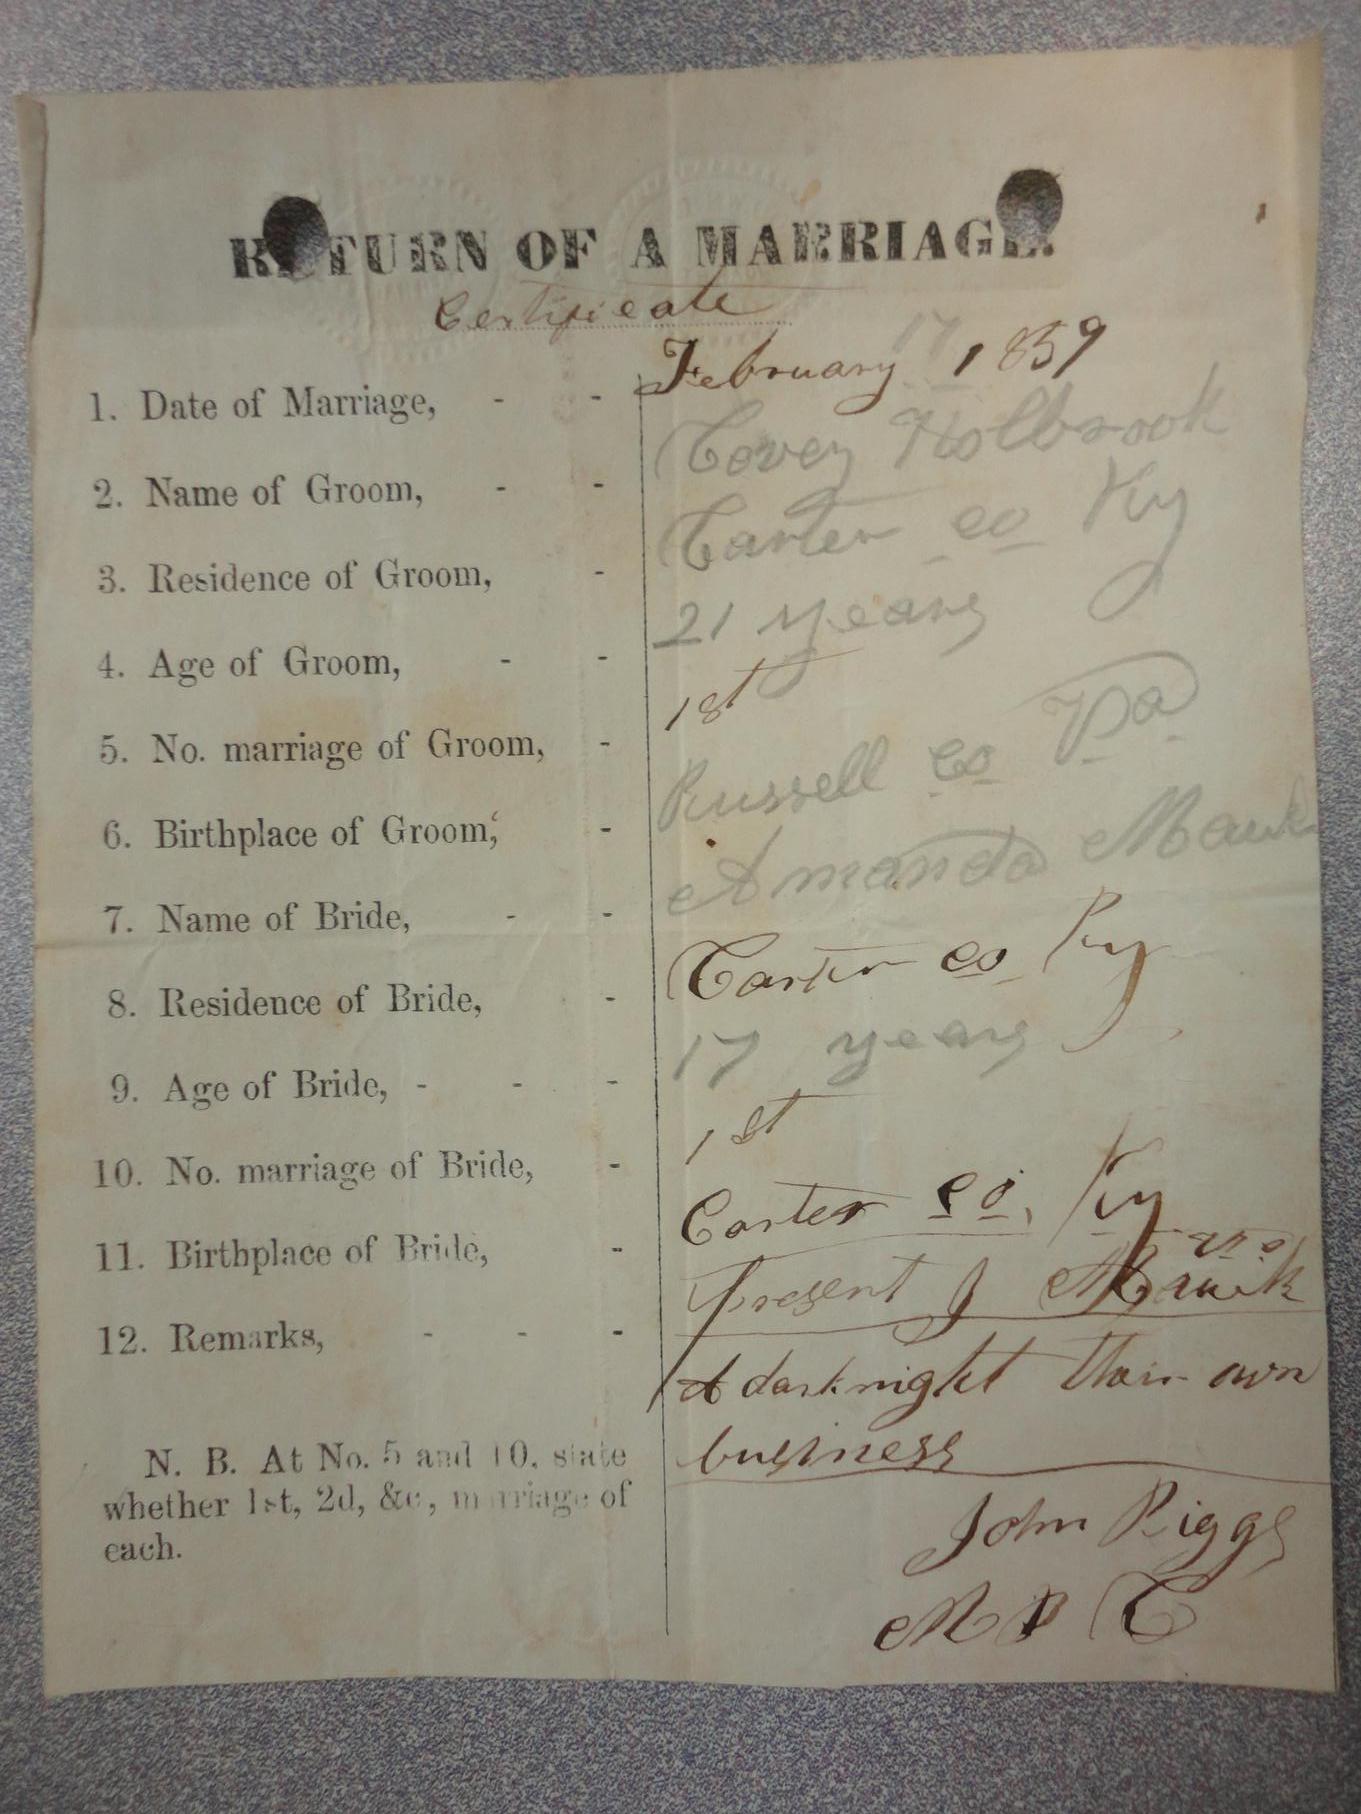 RETURN OF A MARRIAGE.
Certificate
1. Date of Marriage, - - February 17 1859
2. Name of Groom, - - Covey Holbrook
3. Residence of Groom, - Carter co Ky
4. Age of Groom, - - 21 years
5. No. marriage of Groom, - 1st
6. Birthplace of Groom, - Russell co Va
7. Name of Bride, - - Amanda Mauk
8. Residence of Bride, - Carter co Ky
9. Age of Bride, - - - 17 years
10. No. marriage of Bride, - 1st
11. Birthplace of Bride, - Carter co. Ky
12. Remarks, - - - present J Mauk
A dark night thair own
business
N. B. At No. 5 and 10, state
whether 1st, 2d, &c, marriage of
each.
John Riggs